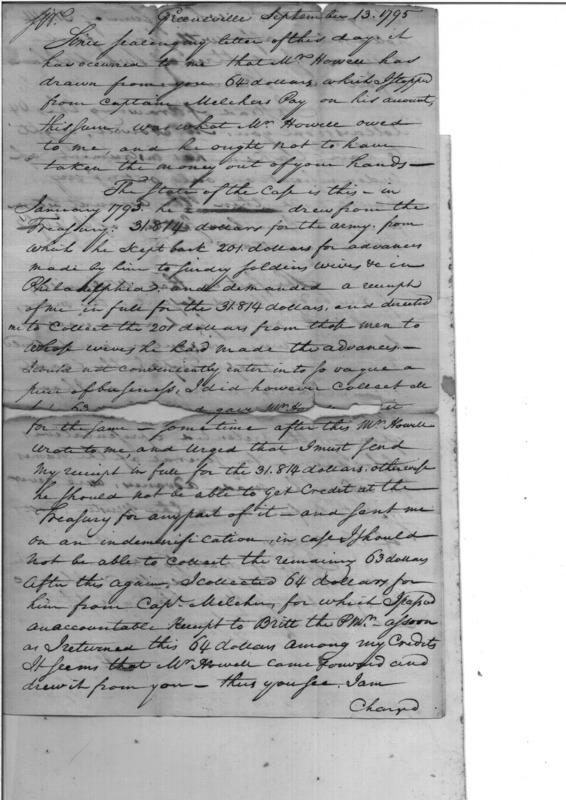 Greenville September 13. 1795
Sir
Since sealing my letter of this day it
has occurred to me that Mr Howell has
drawn from you 64 dollars which I stopped
from Captain Melchers Pay on his account,
this sum was what Mr Howell owed
to me, and he ought not to have
taken the money out of your hands—
The State of the Case is this—in
January 1795 he drew from the
Treasury 31.814 dollars for the army, from
which he kept back 201 dollars for advances
made by him to sundry soldiers wives &c in
Philadelphia, and demanded a receipt
of me in full for the 31.814 dollars, and directed
me to collect the 201 dollars from those men to
whose wives he had made the advances.—
I could not conveniently enter into so vague a
piece of business, I did however collect all
gave Mr Ho it
for the same—sometime after this, Mr Howell
wrote to me, and urged that I must send
my receipt in full for the 31.814 dollars. otherwise
he should not be able to get Credit at the
Treasury for any part of it—and sent me
on an indemnification, in case I should
not be able to collect the remaining 63 dollars
After this again, I collected 64 dollars for
him from Capt Melcher, for which I passed
an accountable Receipt to Britt the PMr. as soon
as I returned this 64 dollars among my Credits
It seems that Mr Howell came Forward and
drew it from you—thus you see, I am
Charged